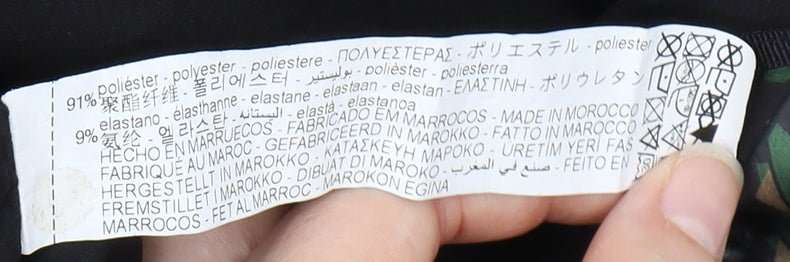 91% poliéster - polyester - poliestere - ΠΟΛΥΕΣΤΕΡΑΣ - ポリエステル - poliester
聚酯纤维 - 폴리에스터 - بوليستير - polièster - poliesterra
9% elastano - élasthanne - elastane - elastaan - elastan - ΕΛΑΣΤΙΝΗ - ポリウレタン
氨纶 - 엘라스탄 - اليستانه - elastà - elastanoa
HECHO EN MARRUECOS - FABRICADO EM MARROCOS - MADE IN MOROCCO
FABRIQUE AU MAROC - GEFABRICEERD IN MAROKKO - FATTO IN MAROCCO
HERGESTELLT IN MAROKKO - ΚΑΤΑΣΚΕΥΗ ΜΑΡΟΚΟ - URETIM YERI FAS
FREMSTILLET I MAROKKO - DIBUAT DI MAROKO - صنع في المغرب - FEITO EN
MARROCOS - FET AL MARROC - MAROKON EGINA